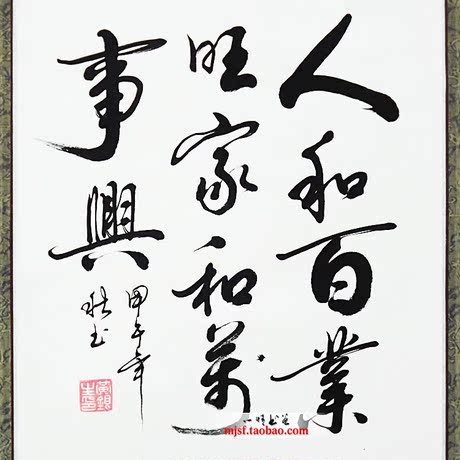 人和百業
旺家和萬
事興
甲午年
秋書
mjsf.taobao.com